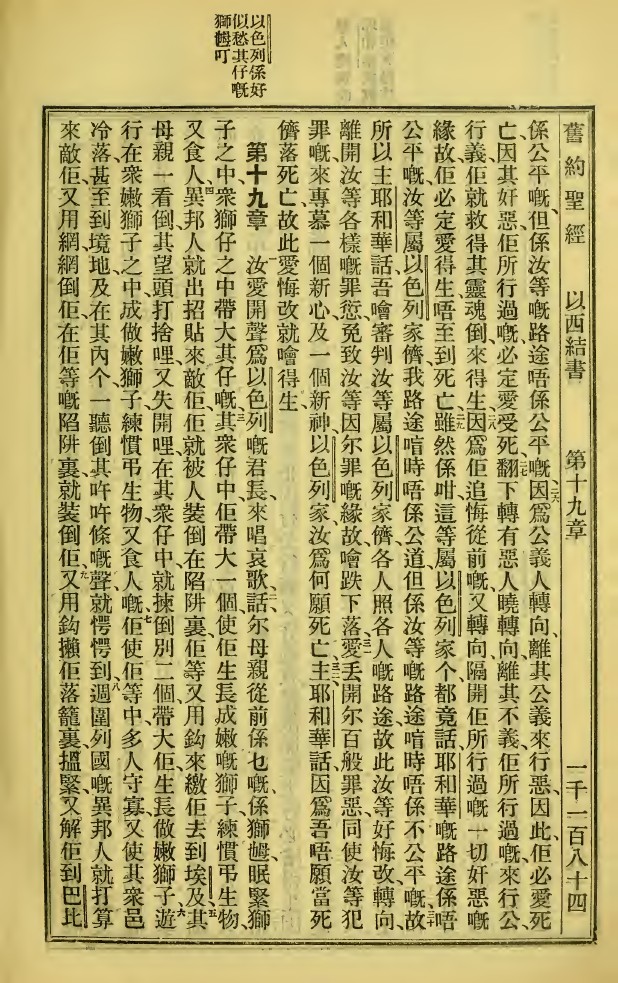 以色列係好
似愁其仔嘅
獅乸叮
舊約聖經 以西結書 第十九章 一千一百八十四
係公平嘅、但係汝等嘅路途唔係公平嘅、二六因爲公義人轉向、離其公義來行惡、因此、佢必愛死
亡、因其奸惡、佢所行過嘅、必定愛受死、二七翻下轉有惡人曉轉向、離其不義、佢所行過嘅、來行公
行義、佢就救得其靈魂倒來得生、二八因爲佢追悔從前嘅、又轉向隔開佢所行過嘅一切奸惡嘅
緣故、佢必定愛得生、唔至到死亡、二九雖然係咁、這等屬以色列家个都竟話、耶和華嘅路途係唔
公平嘅、汝等屬以色列家儕、我路途唷時唔係公道、但係汝等嘅路途唷時唔係不公平嘅、三十故
所以主耶和華話、吾噲審判汝等屬以色列家儕、各人照各人嘅路途、故此汝等好悔改、轉向、
離開汝等各樣嘅罪愆、免致汝等因尔罪嘅緣故、噲跌下落、三一愛丢開尔百般罪惡、同使汝等犯
罪嘅、來專慕一個新心、及一個新神、以色列家、汝爲何願死亡、三二主耶和華話、因爲吾唔願當死
儕落死亡、故此愛悔改、就噲得生、
第十九章 一汝愛開聲爲以色列嘅君長、來唱哀歌、二話、尔母親從前係乜嘅、係獅乸、眠緊獅
子之中、衆獅仔之中帶大其仔嘅、三其衆仔中、佢帶大一個、使佢生長成嫩嘅獅子、練慣弔生物、
又食人、四異邦人就出招貼來敵佢、佢就被人裝倒在陷阱裏、佢等又用鈎來繳佢去到埃及、五其
母親一看倒、其望頭打捨哩、又失開哩、在其衆仔中、就揀倒別二個、帶大佢生長做嫩獅子、六遊
行在衆嫩獅子之中、成做嫩獅子、練慣弔生物、又食人嘅、七佢使佢等中多人守寡、又使其衆邑
冷落、甚至到境地及在其內个、一聽倒其吘吘條嘅聲、就愕愕到、八週圍列國嘅異邦人、就打算
來敵佢、又用網、網倒佢、在佢等嘅陷阱裏、就裝倒佢、九又用鈎攋佢落籠裏、搵緊、又解佢到巴比